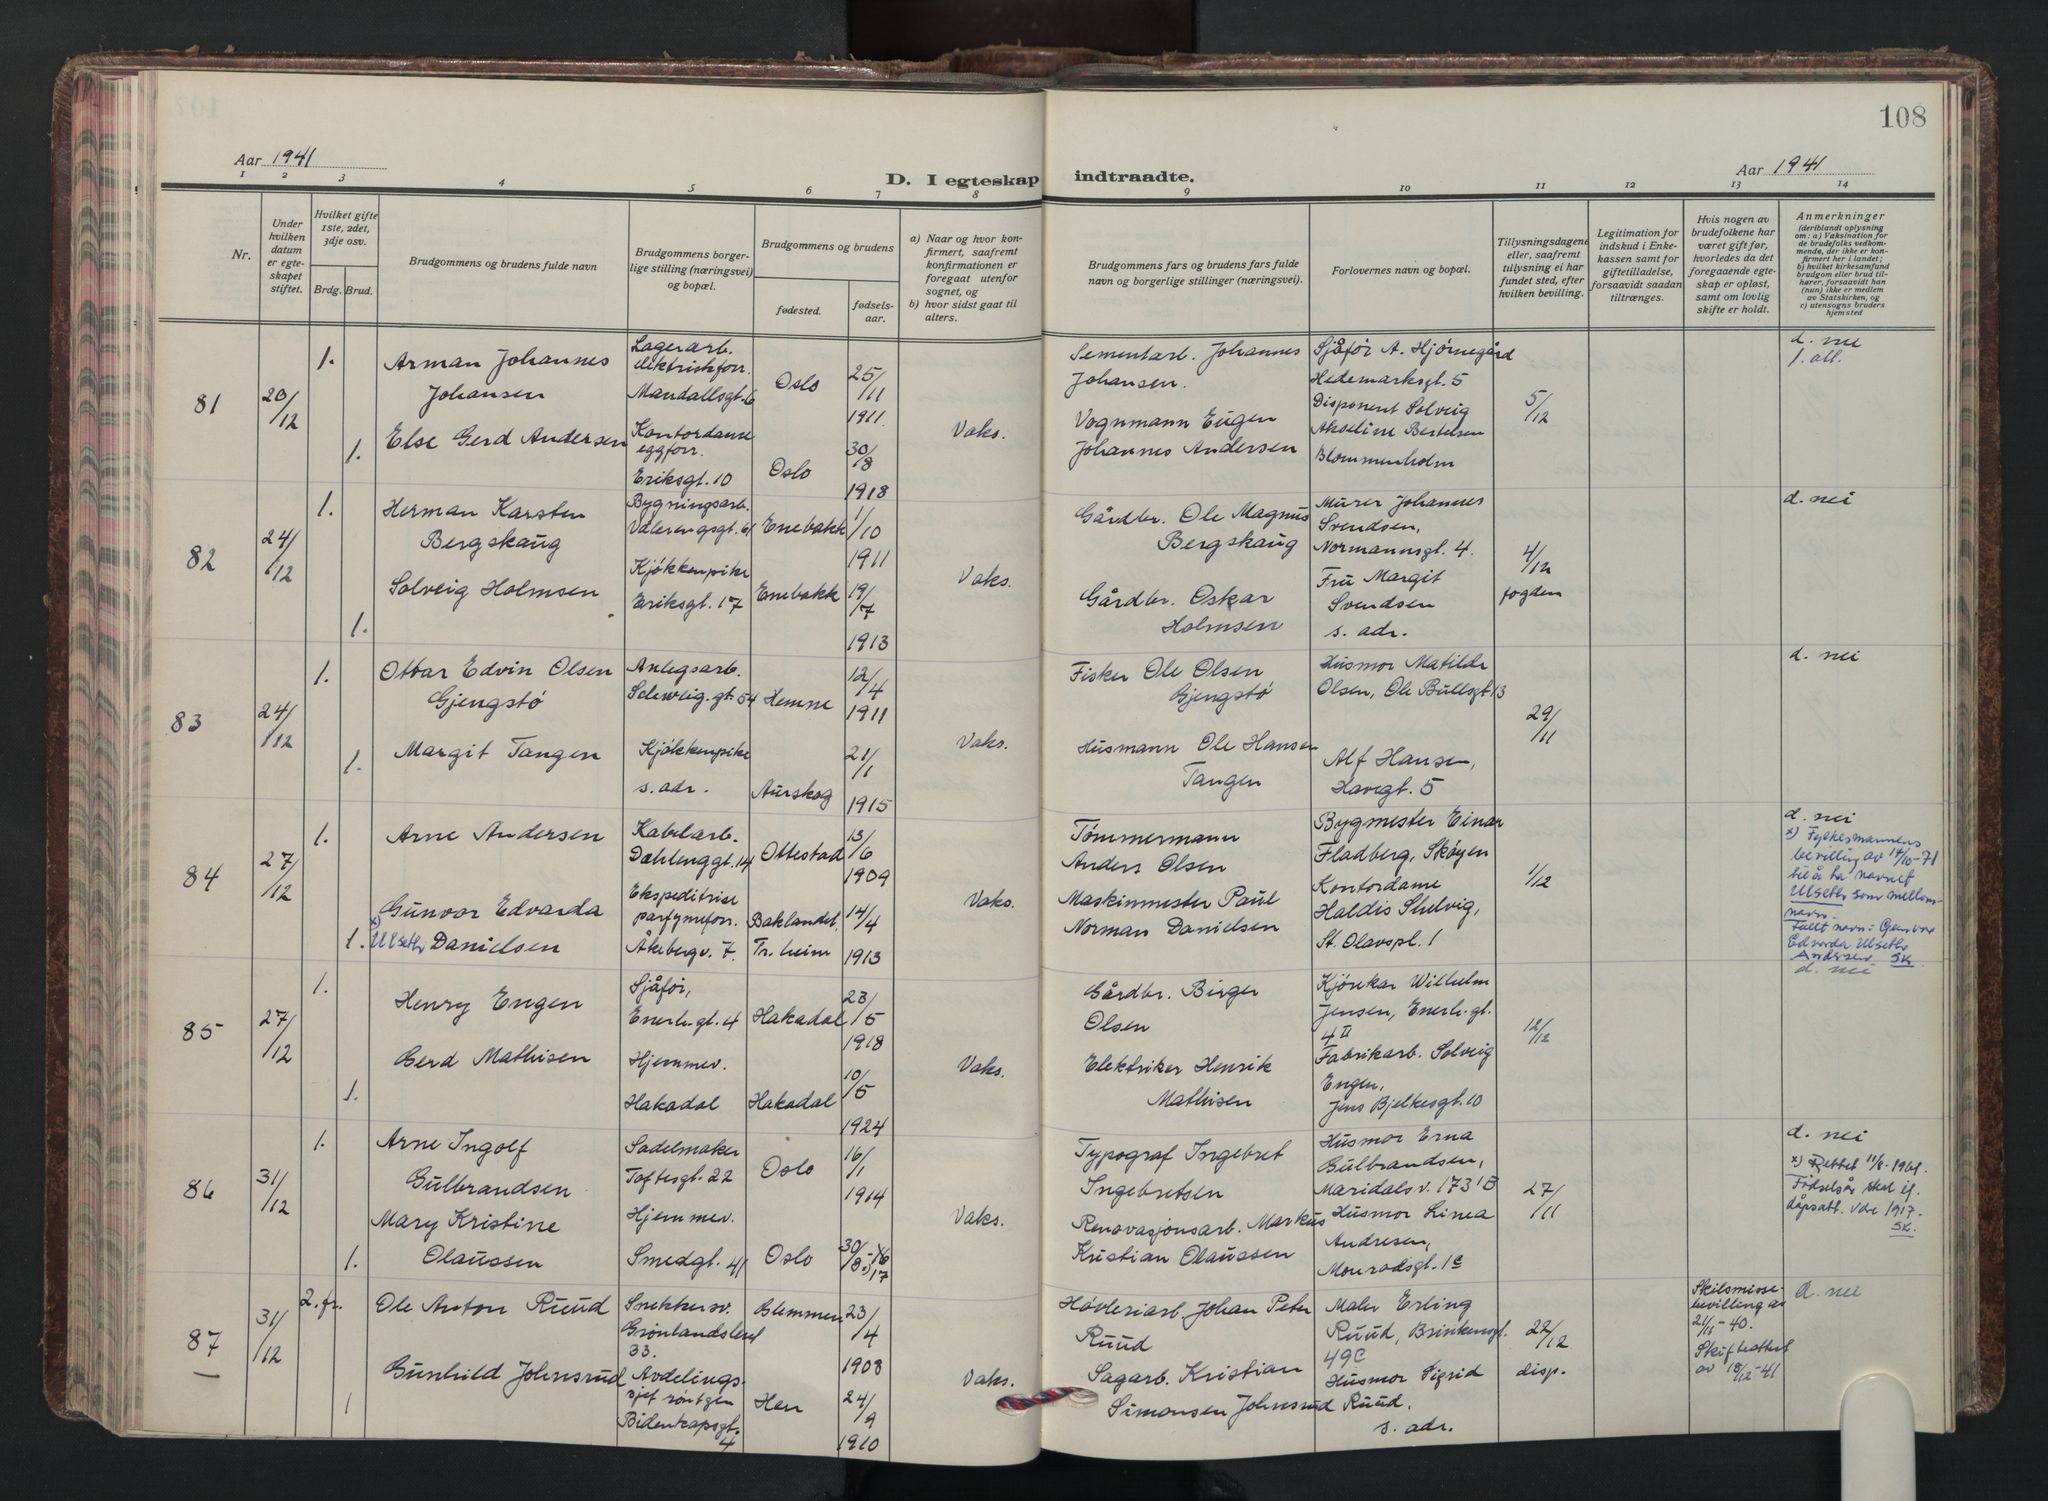 108
Aar 1941
D. I egteskap indtraadte.
Aar 1941
1 2 3 4 5 6 7 8 9 10 11 12 13 14
Nr.
Under hvilken datum er egteskapet stiftet.
Hvilket gifte 1ste, 2det, 3dje osv.
Brdg. Brud.
Brudgommens og brudens fulde navn
Brudgommens borgerlige stilling (næringsvei) og bopæl.
Brudgommens og brudens
fødested.
fødselsaar.
a) Naar og hvor konfirmert, saafremt konfirmationen er foregaat utenfor sognet, og
b) hvor sidst gaat til alters.
Brudgommens fars og brudens fars fulde navn og borgerlige stillinger (næringsvei).
Forlovernes navn og bopæl.
Tillysningsdagene eller, saafremt tillysning ei har fundet sted, efter hvilken bevilling.
Legitimation for indskud i Enkekassen samt for giftetilladelse, forsaavidt saadan tiltrænges.
Hvis nogen av brudefolkene har været gift før, hvorledes da det foregaaende egteskap er opløst, samt om lovlig skifte er holdt.
Anmerkninger
(deriblandt oplysning om: a) Vaksination for de brudefolks vedkommende, der ikke er konfirmert her i landet; b) hvilket kirkesamfund brudgom eller brud tilhører, forsaavidt han (hun) ikke er medlem av Statskirken, og c) utensogns bruders hjemsted
81
20/12
1.
Arman Johannes
Johansen
Lagerarb.
elektriskforr.
Mandallsgt. 6
Oslo
25/11
1911.
Sementarb. Johannes
Johansen.
Sjåfør A. Hjørnegård
Hedemarksgt. 5
5/12
d. nei
1.
Else Gerd Andersen
Kontordame
eggforr.
Eriksgt. 10
Oslo
30/8
1918
Vaks.
Vognmann Eugen
Johannes Andersen
Disponent Solveig
Akseline Bertelsen
Blommenholm
82
24/12
1.
Herman Karsten
Bergskaug
Bygningsarb.
Vålerengsgt. 61
Enebakk
1/10
1911
Gårdbr. Ole Magnus
Bergskaug
Murer Johannes
Svendsen,
Normannsgt. 4.
4/12
fogden
d. nei
1.
Solveig Holmsen
Kjøkkenpike
Eriksgt. 17
Enebakk
19/7
1913
Vaks.
Gårdbr. Oskar
Holmsen
Fru Margit
Svendsen
s. adr.
83
24/12
1.
Ottar Edvin Olsen
Gjengstø
Anlegsarb.
Selvig. gt. 54
Hemne
12/4
1911
Fisker Ole Olsen
Gjengstø
Husmor Matilde
Olsen, Ole Bullsgt 13
29/11
d. nei
1.
Margit Tangen
Kjøkkenpike
s. adr.
Aurskog
21/1
1915
Vaks.
Husmann Ole Hansen
Tangen
Alf Hansen,
Havegt. 5
84
27/12
1.
Arne Andersen
Kabelarb.
Dæhlenggt. 14
Ottestad
13/6
1909
Tømmermann
Anders Olsen
Bygmester Einar
Fladberg, Skøyen
1/12
d. nei
x) Fylkesmannens
bevilling av 14/10-71
til å ta navnet
Ulseth som mellom-
navn.
Fullt navn: Gunvor
Edvarda Ulseth
Andersen. SK
1.
Gunvor Edvarda
x) Ulseth Danielsen
Ekspeditrise
parfymeforr.
Åkebergv. 7.
Baklandet
Tr. heim
14/4
1913
Vaks.
Maskinmester Paul
Norman Danielsen
Kontordame
Haldis Skelvig,
St. Olavspl. 1
85
27/12
1.
Henry Engen
Sjåfør,
Enerh. gt. 4
Hakadal
23/5
1918
Gårdbr. Birger
Olsen
Kjørekar Wilhelm
Jensen, Enerh. gt.
4 II
12/12
d. nei
1.
Gerd Mathisen
Hjemmev.
Hakadal
Hakadal
10/5
1924
Vaks.
Elektriker Henrik
Mathisen
Fabrikarb. Solveig
Engen,
Jens Bjelkesgt. 10
86
31/12
1.
Arne Ingolf
Gulbrandsen
Sadelmaker
Toftesgt. 22
Oslo
16/1
1914
Typograf Ingebret
Ingebretsen
Husmor Erna
Gulbrandsen,
Maridalsv. 173 B
27/11
d. nei
x) Rettet 11/8-1961.
Fødselsår skal if.
dåpsatt. være 1917.
SK.
1.
Mary Kristine
Olaussen
Hjemmev.
Smedgt. 41
Oslo
30/8-16
x) 17
Vaks.
Renovasjonsarb. Markus
Kristian Olaussen
Husmor Linea
Andresen,
Monradsgt. 1c
87
31/12
2. fr.
Ole Anton Ruud
Snekkersv.
Grønlandsleret
33.
Blemmen
23/4
1908
Høvleriarb. Johan Peter
Ruud
Maler Erling
Ruud, Brinkensgt.
49C
22/12
disp.
Skilsmisse-
bevilling av
21/11-40.
Skifteattest
av 18/12-41
d. nei
1
Gunhild Johnsrud
Avdelings-
sjef røntgen
Bidenkapsgt.
4
Hen
24/9
1910
Vaks.
Sagarb. Kristian
Simonsen Johnsrud
Husmor Sigrid
Ruud.
s. adr.